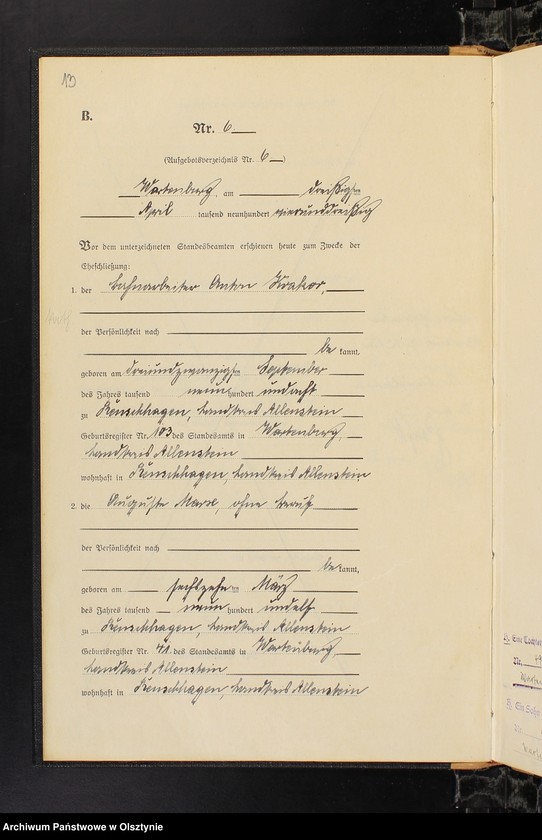 13
B.
Nr. 6
(Aufgebotsverzeichnis Nr. 6)
Wartenburg, am dreißigsten
April tausend neunhundert vierunddreißig
Vor dem unterzeichneten Standesbeamten erschienen heute zum Zwecke der
Eheschließung:
1. der Bahnarbeiter Anton
der Persönlichkeit nach
be kannt,
geboren am dreiundzwanzigsten September
des Jahres tausend neun hundert undacht
zu Reuschhagen, Landkreis Allenstein
Geburtsregister Nr. 103 des Standesamts in Wartenburg,
Landkreis Allenstein
wohnhaft in Reuschhagen, Landkreis Allenstein
2. die Auguste ohne Beruf
der Persönlichkeit nach
be kannt,
geboren am sechszehnten März
des Jahres tausend neun hundert undelf
zu Reuschhagen, Landkreis Allenstein
Geburtsregister Nr. des Standesamts in Wartenburg,
Landkreis Allenstein
wohnhaft in Reuschhagen, Landkreis Allenstein
Eine Tochter
Nr.
Ein Sohn
Archiwum Państwowe w Olsztynie